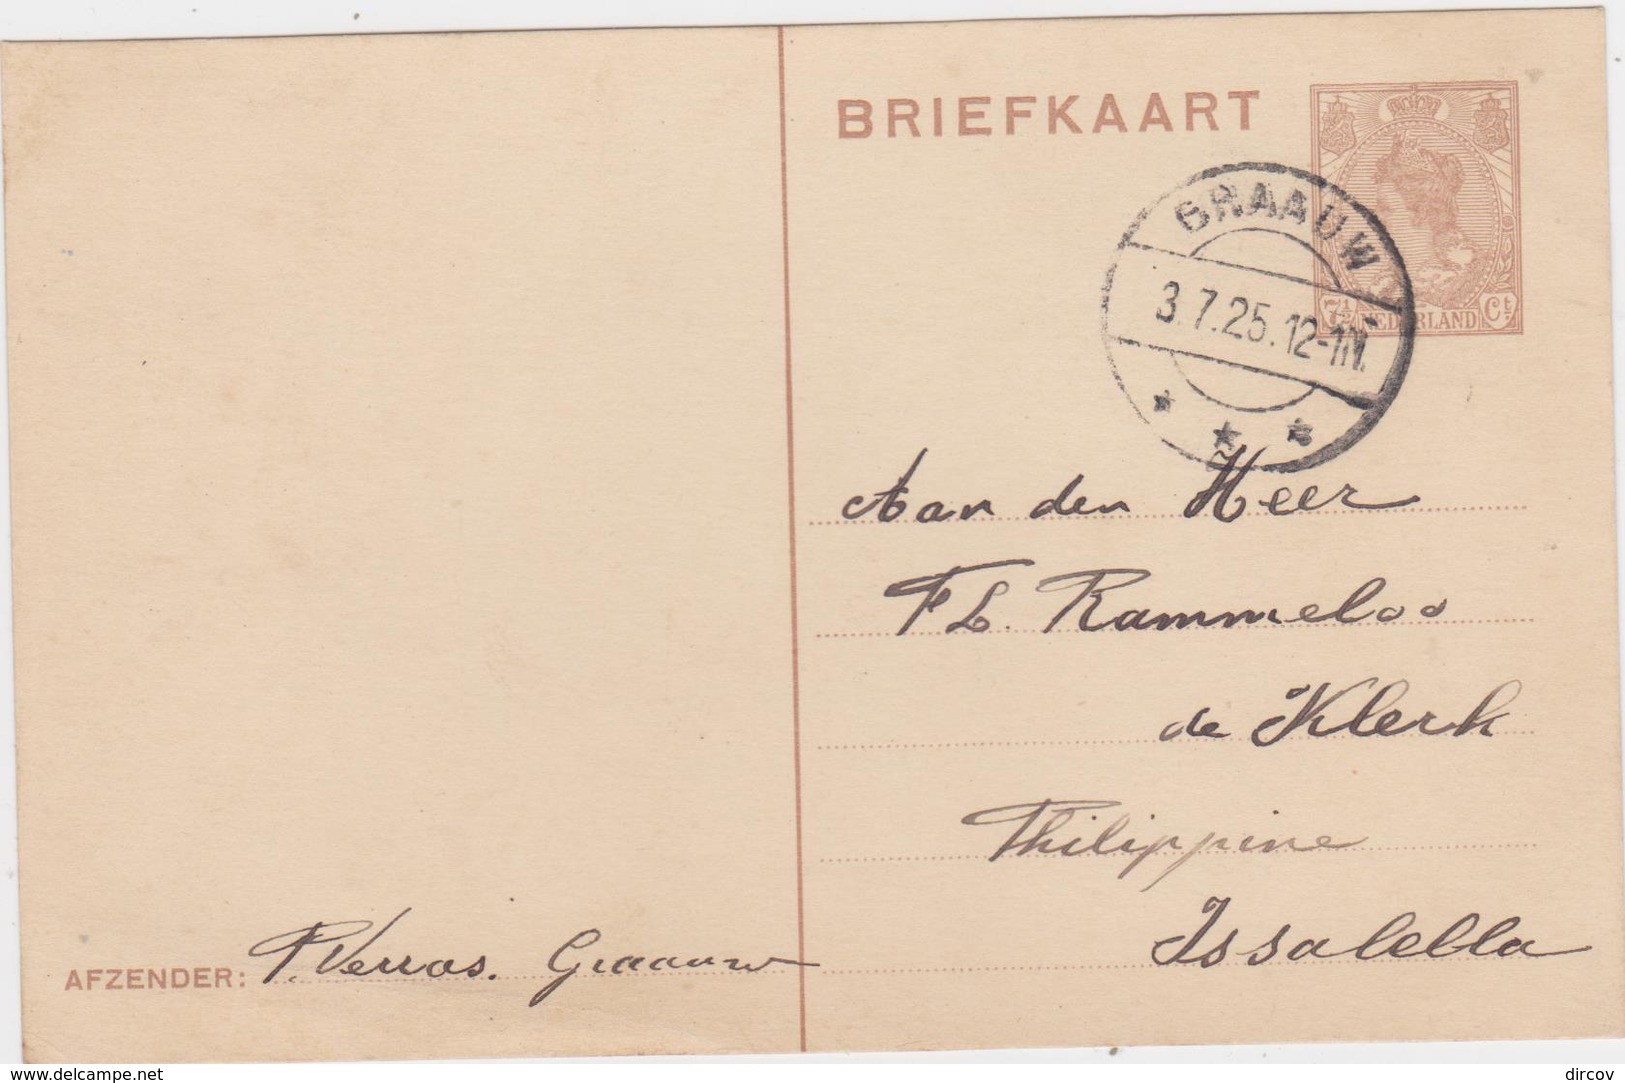 BRIEFKAART
GRAAUW
3.7.25.12-1N.
7½ NEDERLAND Ct
Aan den Heer
F L. Rammeloo
de Klerk
Philippine
Issalella
AFZENDER: P. Verras. Graauw
www.delcampe.net
dircov